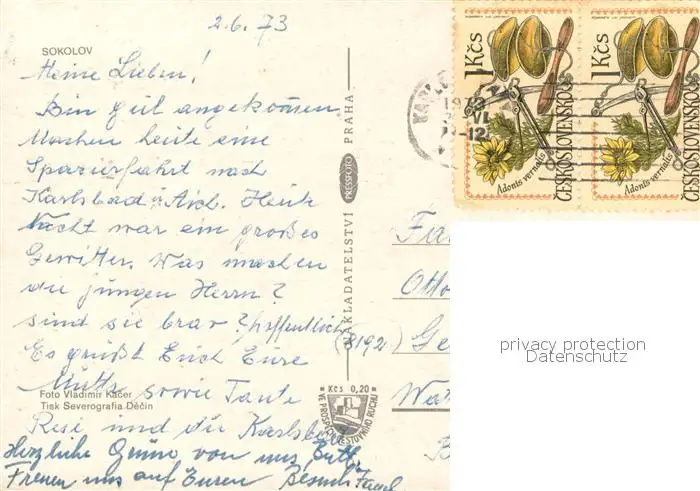 2.6.73
SOKOLOV
Meine Lieben!
Bin gut angekommen
Machen heute eine
Spazierfahrt nach
Karlsbad u. Aich. Heute
Nacht war ein großes
Gewitter. Was machen
die jungen Herrn?
sind sie brav? hoffentlich
Es grüßt Euch Eure
Mutti sowie Tante
Resi und die Karlsb
Herzliche Grüße von uns,
Freuen uns auf Euren Besuch
Foto Vladimír Kačer
Tisk Severografia Děčín
NAKLADATELSTVÍ PRESSFOTO PRAHA
Kčs 0,20
VE PROSPĚCH CESTOVNÍHO RUCHU
KARLO
1973
VI
12
1 Kčs
Adonis vernalis
ČESKOSLOVENSKO
1 Kčs
Adonis vernalis
ČESKOSLOVENSKO
Fa
Otto
(8192) Ge
Wa
privacy protection
Datenschutz